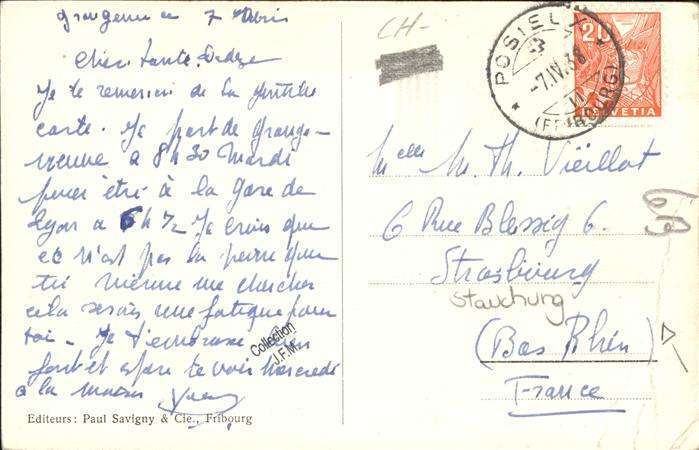 Grangeneuve 7 Avril
Chère tante
Je te remercie de la gentille
carte. Je part de Grange-
neuve a 8 h 30 Mardi
pour être à la gare de
Lyon a 6 h ½ Je crois que
ce n'est pas la peine que
tu vienne me chercher
cela serais une fatigue pour
toi - Je t'embrasse bien
fort et espère te voir mercredi
a la maison
Editeurs: Paul Savigny & Cie., Fribourg
Collection
J.F.M.
CH-
POSIEUX
-7.IV.38
(FRIBOURG)
20
HELVETIA
Melle M. Th. Viëillot
6 Rue Blessig 6.
Strasbourg
Stauchung
(Bas Rhin)
France